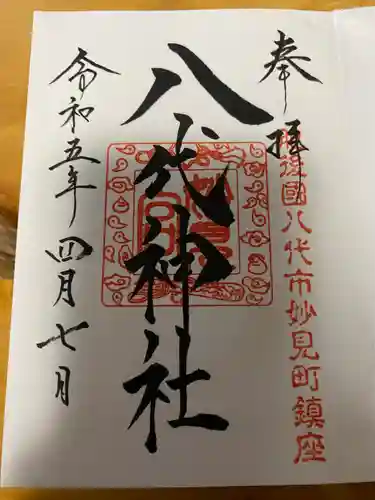 奉拝
肥後國八代市妙見町鎮座
八代神社
妙見宮
令和五年四月七月